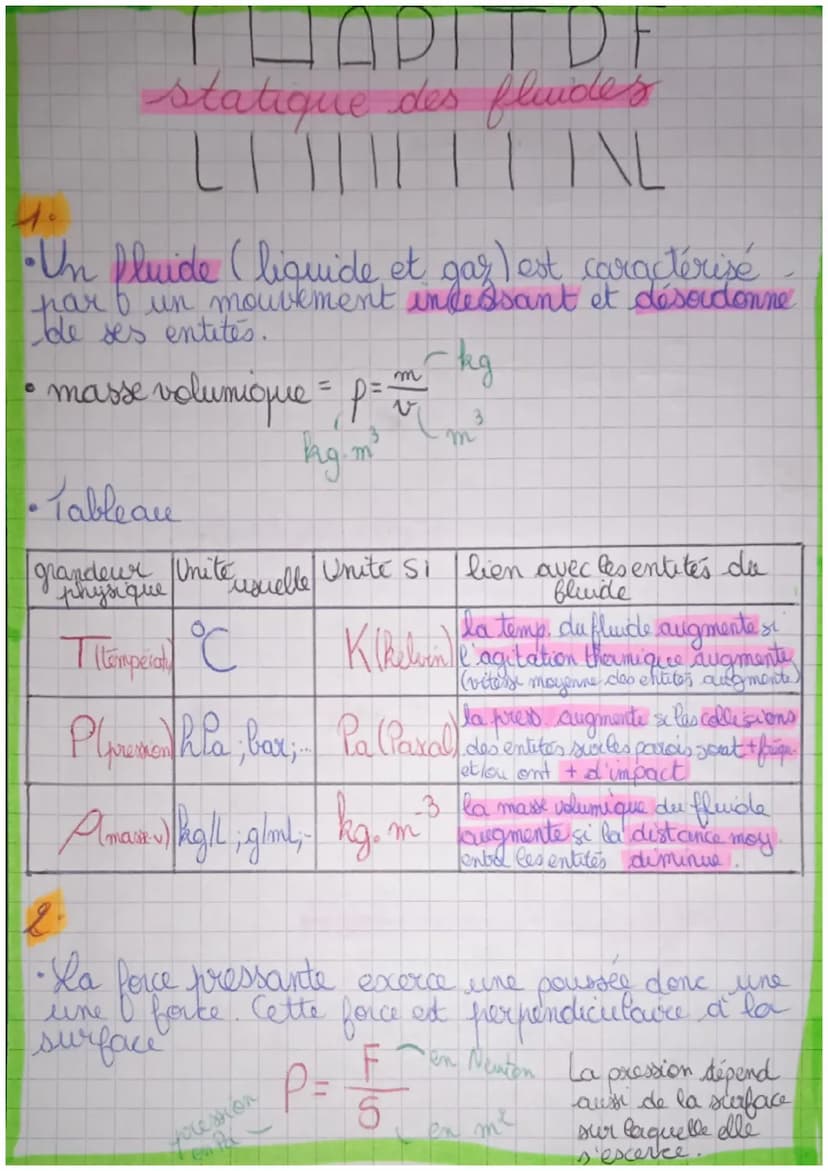 CHAPITRE
statique des fluides
1.
• Un fluide (liquide et gaz) est caractérisé
par un mouvement incessant et désordonne
de ses entités.
• masse volumique = ρ = m/v
kg
m³
kg.m³
• Tableau
grandeur physique | Unité usuelle | Unité SI | lien avec les entités du fluide
T (températ) | °C | K (kelvin) | la temp. du fluide augmente si
l'agitation thermique augmente
(vitesse moyenne des entités augmente)
P (pression) | hPa ; bar ; ... | Pa (Pascal) | la press. augmente si les collisions
des entités sur les parois sont + fréq.
et/ou ont + d'impact
ρ (masse v) | kg/L ; g/mL ; - | kg.m⁻³ | la masse volumique du fluide
augmente si la distance moy.
entre les entités diminue.
2.
• La force pressante exerce une poussée donc une
une force. Cette force est perpendiculaire à la
surface
P = F/S
en Newton
en m²
pression
en Pa
La pression dépend
aussi de la surface
sur laquelle elle
s'exerce.